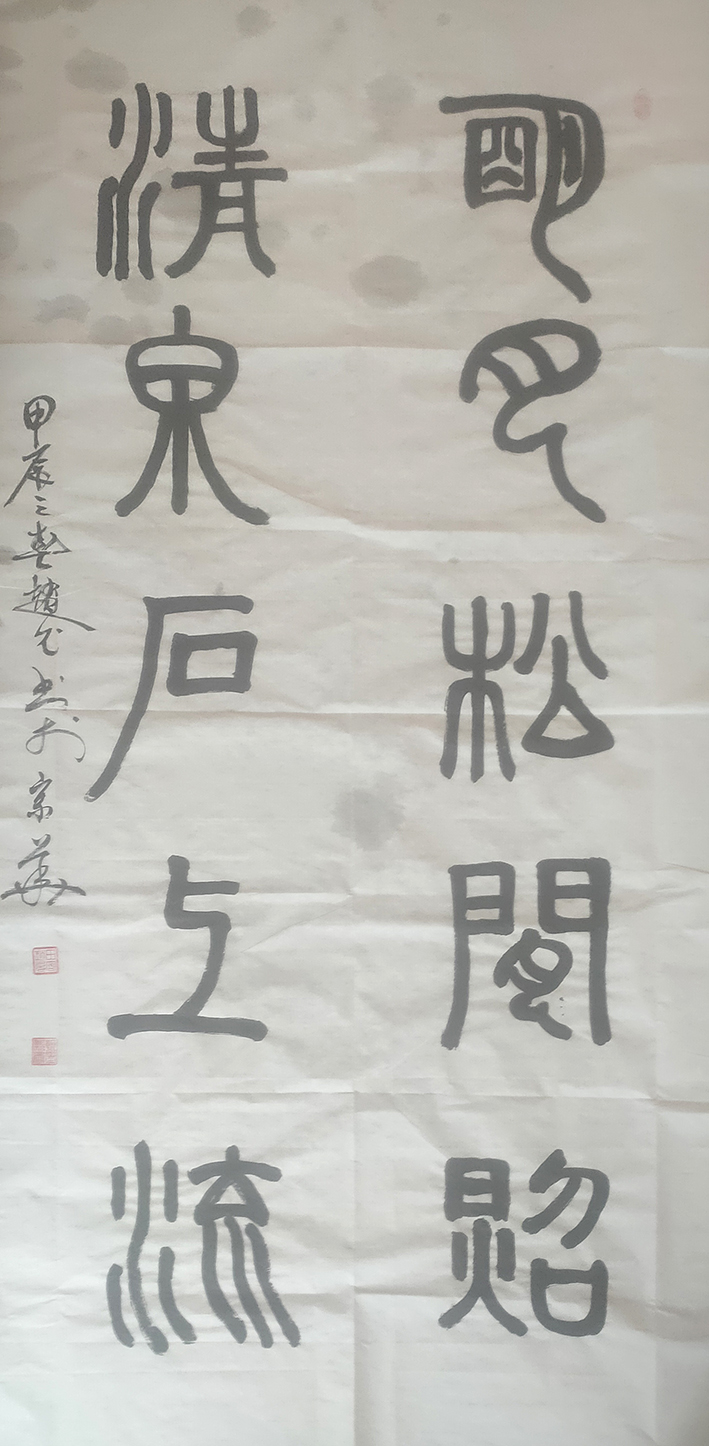 明月松間照
清泉石上流
甲辰之春趙允书於京華